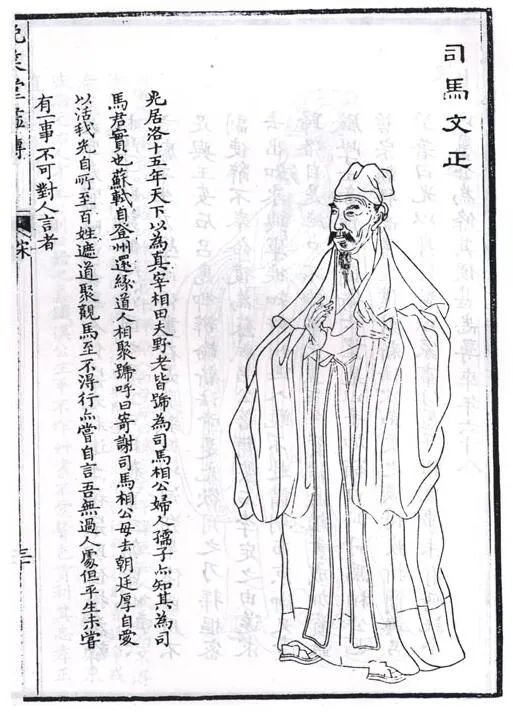 司馬文正
光居洛十五年天下以為真宰相田夫野老皆號為司馬相公婦人孺子亦知其為司
馬君實也蘇軾自登州還緣道人相聚號呼曰寄謝司馬相公毋去朝廷厚自愛
以活我光自所至百姓遮道聚觀馬至不得行亦嘗自言吾無過人處但平生未嘗
有一事不可對人言者
晚笑堂畫傳
宋
三十